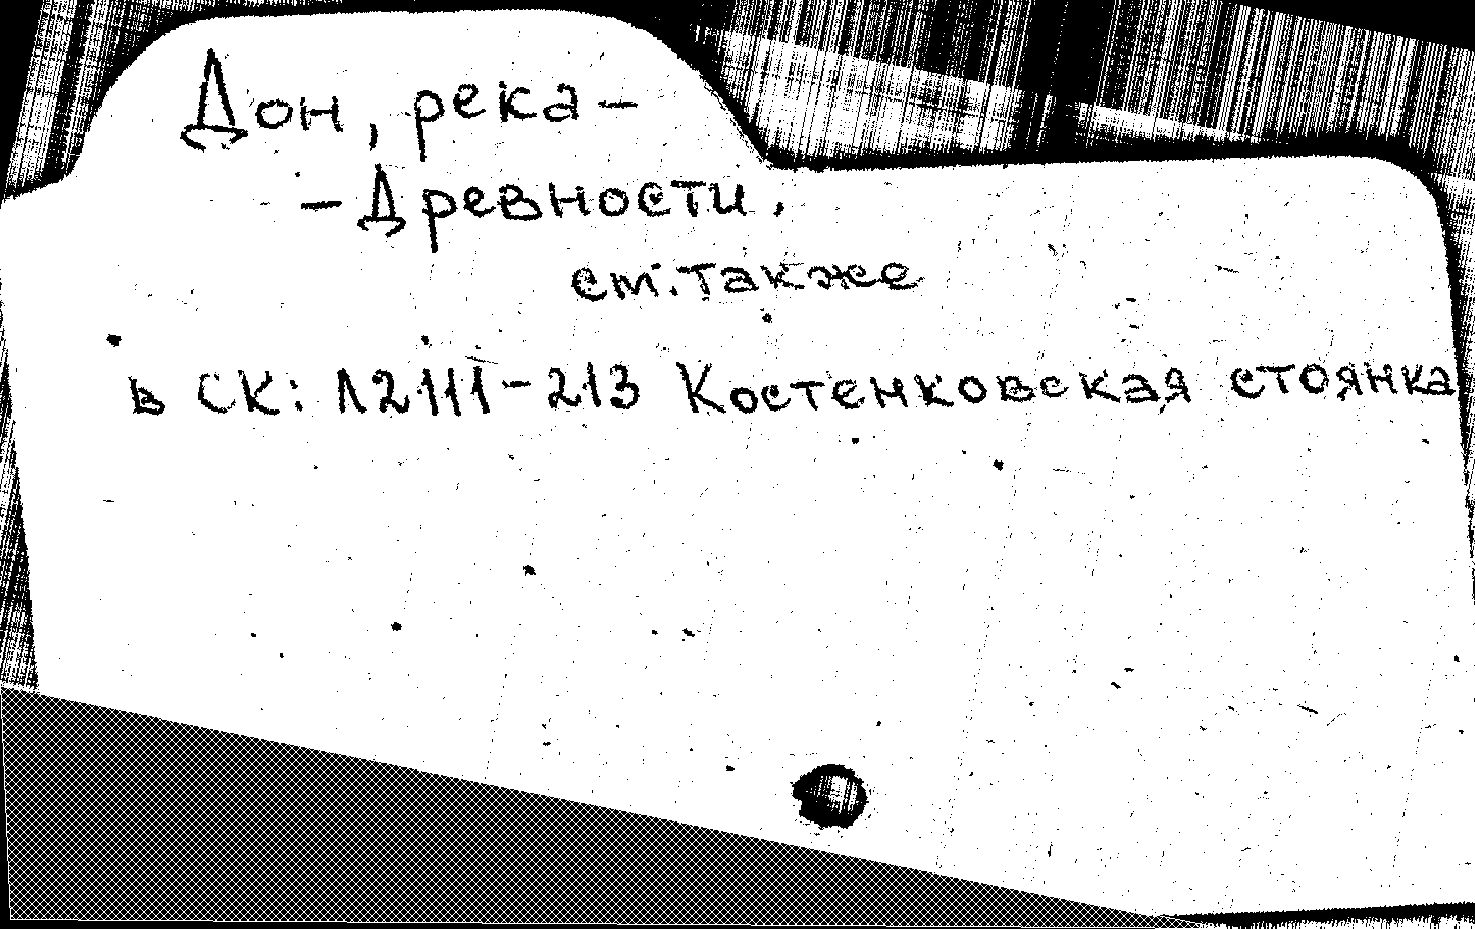 Дон, река –
– Древности,
см. также
в СК: Л2111-213 Костенковская стоянка